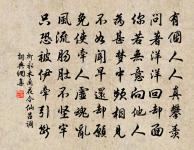 有個人人真攀羨
問著洋洋回卻面
你若無意向他人
為甚夢中頻相見
不如聞早還卻願
免使牽人虛魂亂
風流腸肚不堅牢
只恐被伊牽引斷
柳永木蘭花令仙呂調